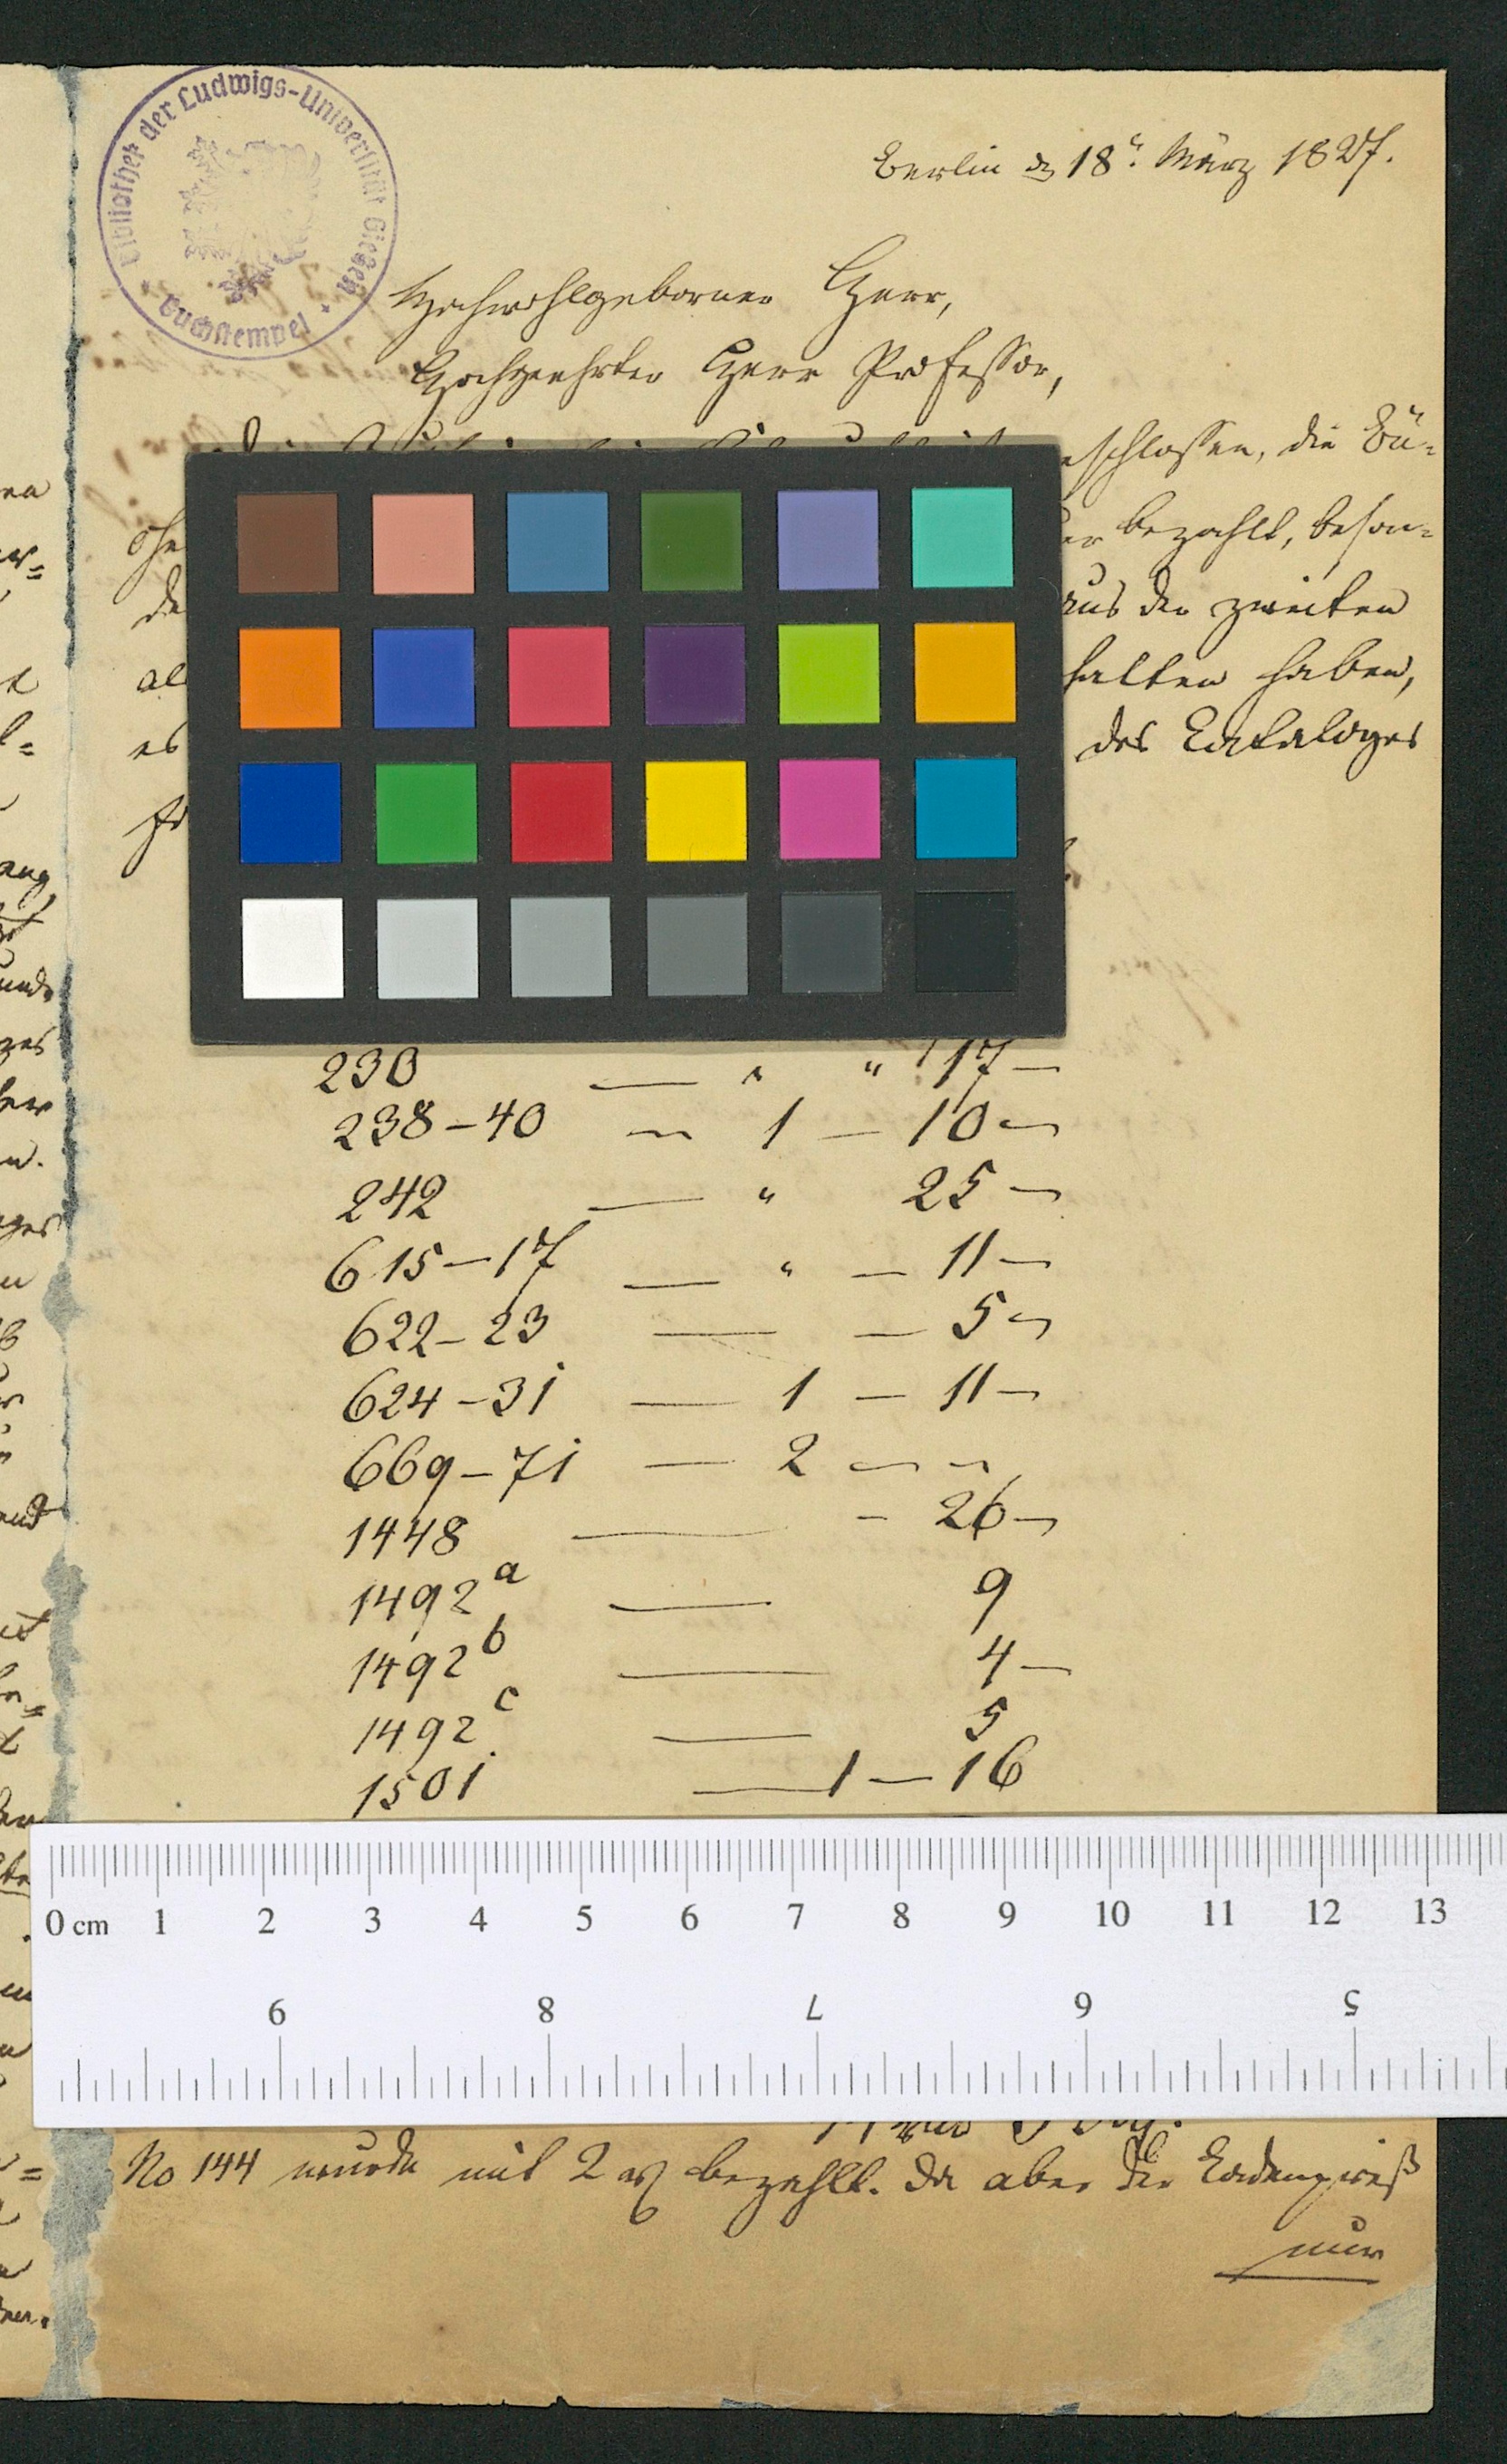 Bibliothek der Ludwigs-Universität Gießen
Buchstempel
Berlin d 18t. März 1827.
Hochwohlgeborner Herr,
Hochgeehrter Herr Professor,
eschlossen, die Bü-
che
er bezahlt, beson-
de
aus der zweiten
al
halten haben,
es
des Cataloges
230 — " " 17 —
238-40 — 1 — 10 —
242 — " 25 —
615-17 — " — 11 —
622-23 — — 5 —
624-31 — 1 — 11 —
669-71 — 2 — —
1448 — - 26 —
1492a — 9
1492b — 4 —
1492c — 5
1501 — 1 — 16
0 cm 1 2 3 4 5 6 7 8 9 10 11 12 13
9 8 7 6 5
No 144 wurde mit 2 bezahlt. Da aber der Ladenpreiß
nur